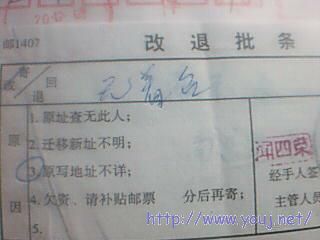 邮1407
改退批条
改寄
退回
原因
1. 原址查无此人；
2. 迁移新址不明；
3. 原写地址不详；
4. 欠资、请补贴邮票　　分后再寄；
5.
经手人签
主管人员
http://www.youj.net/